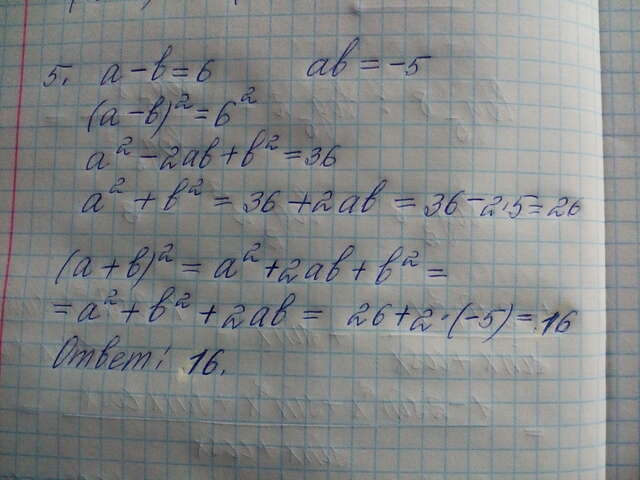 5. a - b = 6 ab = -5
(a - b)² = 6²
a² - 2ab + b² = 36
a² + b² = 36 + 2ab = 36 - 2·5 = 26
(a + b)² = a² + 2ab + b² =
= a² + b² + 2ab = 26 + 2·(-5) = 16
Ответ: 16.